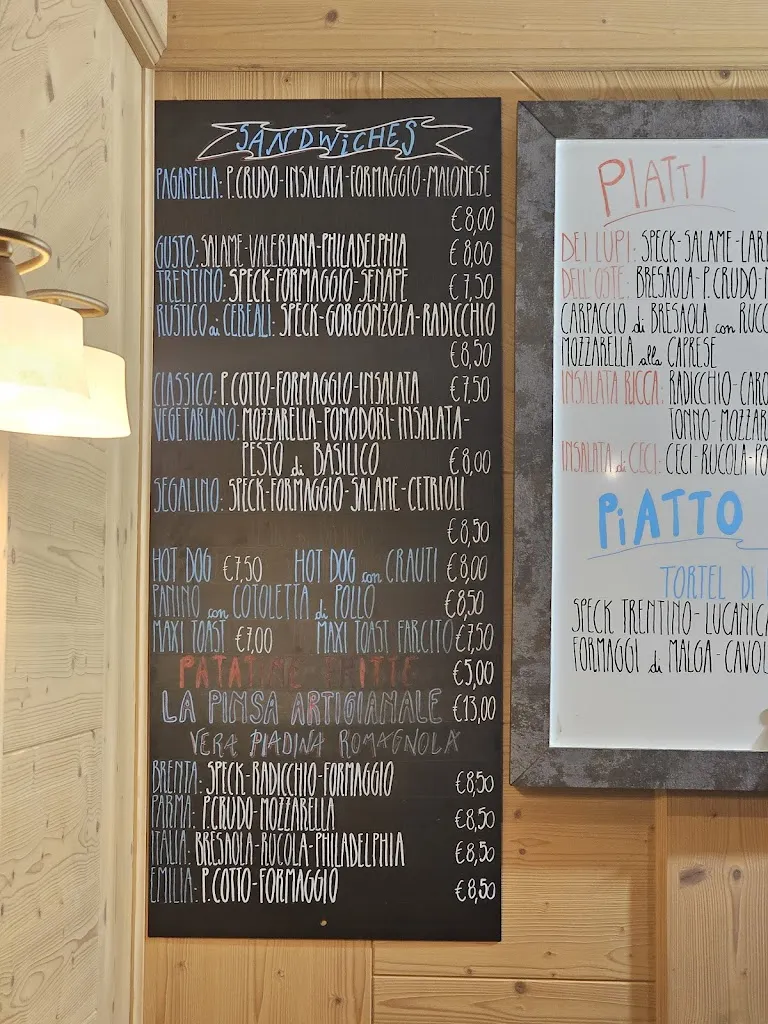 SANDWICHES
PAGANELLA: P.CRUDO-INSALATA-FORMAGGIO-MAIONESE
€8,00
GUSTO: SALAME-VALERIANA-PHILADELPHIA €8,00
TRENTINO: SPECK-FORMAGGIO-SENAPE €7,50
RUSTICO ai CEREALI: SPECK-GORGONZOLA-RADICCHIO
€8,50
CLASSICO: P.COTTO-FORMAGGIO-INSALATA €7,50
VEGETARIANO: MOZZARELLA-POMODORI-INSALATA-
PESTO di BASILICO €8,00
SEGALINO: SPECK-FORMAGGIO-SALAME-CETRIOLI
€8,50
HOT DOG €7,50 HOT DOG con CRAUTI €8,00
PANINO con COTOLETTA di POLLO €8,50
MAXI TOAST €7,00 MAXI TOAST FARCITO €7,50
PATATINE FRITTE €5,00
LA PINSA ARTIGIANALE €13,00
VERA PIADINA ROMAGNOLA
BRENTA: SPECK-RADICCHIO-FORMAGGIO €8,50
PARMA: P.CRUDO-MOZZARELLA €8,50
ITALIA: BRESAOLA-RUCOLA-PHILADELPHIA €8,50
EMILIA: P.COTTO-FORMAGGIO €8,50
PIATTI
DEI LUPI: SPECK-SALAME-
DELL'OSTE: BRESAOLA-P.CRUDO-
CARPACCIO di BRESAOLA con
MOZZARELLA alla CAPRESE
INSALATA RICCA: RADICCHIO-
TONNO-
INSALATA di CECI: CECI-RUCOLA-
PiATTO
TORTEL DI
SPECK TRENTINO-
FORMAGGI di MALGA-